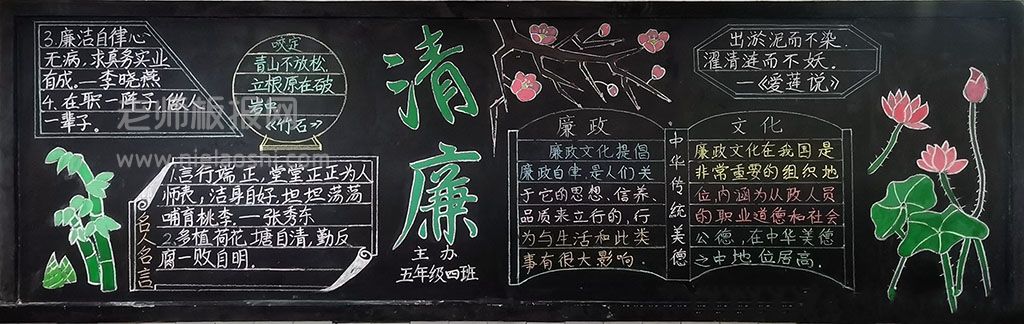 3.廉洁自律心
无病,求真务实业
有成。—李晓燕
4.在职一阵子,做人
一辈子。
咬定
青山不放松
立根原在破
岩中
《竹石》
清廉
主办
五年级四班
名人名言
1.言行端正,堂堂正正为人
师表,洁身自好,坦坦荡荡
哺育桃李——张秀东
2.多植荷花,塘自清,勤反
腐一败自明。
出淤泥而不染.
濯清涟而不妖.
—《爱莲说》
廉政
廉政文化提倡
廉政自律,是人们关
于它的思想、信养、
品质来立行的,行
为与生活和此类
事有很大影响.
中华传统美德
文化
廉政文化在我国是
非常重要的组织地
位,内涵为从政人员
的职业道德和社会
公德,在中华美德
之中地位居高.
老师板报网
www.qjslaoshi.com